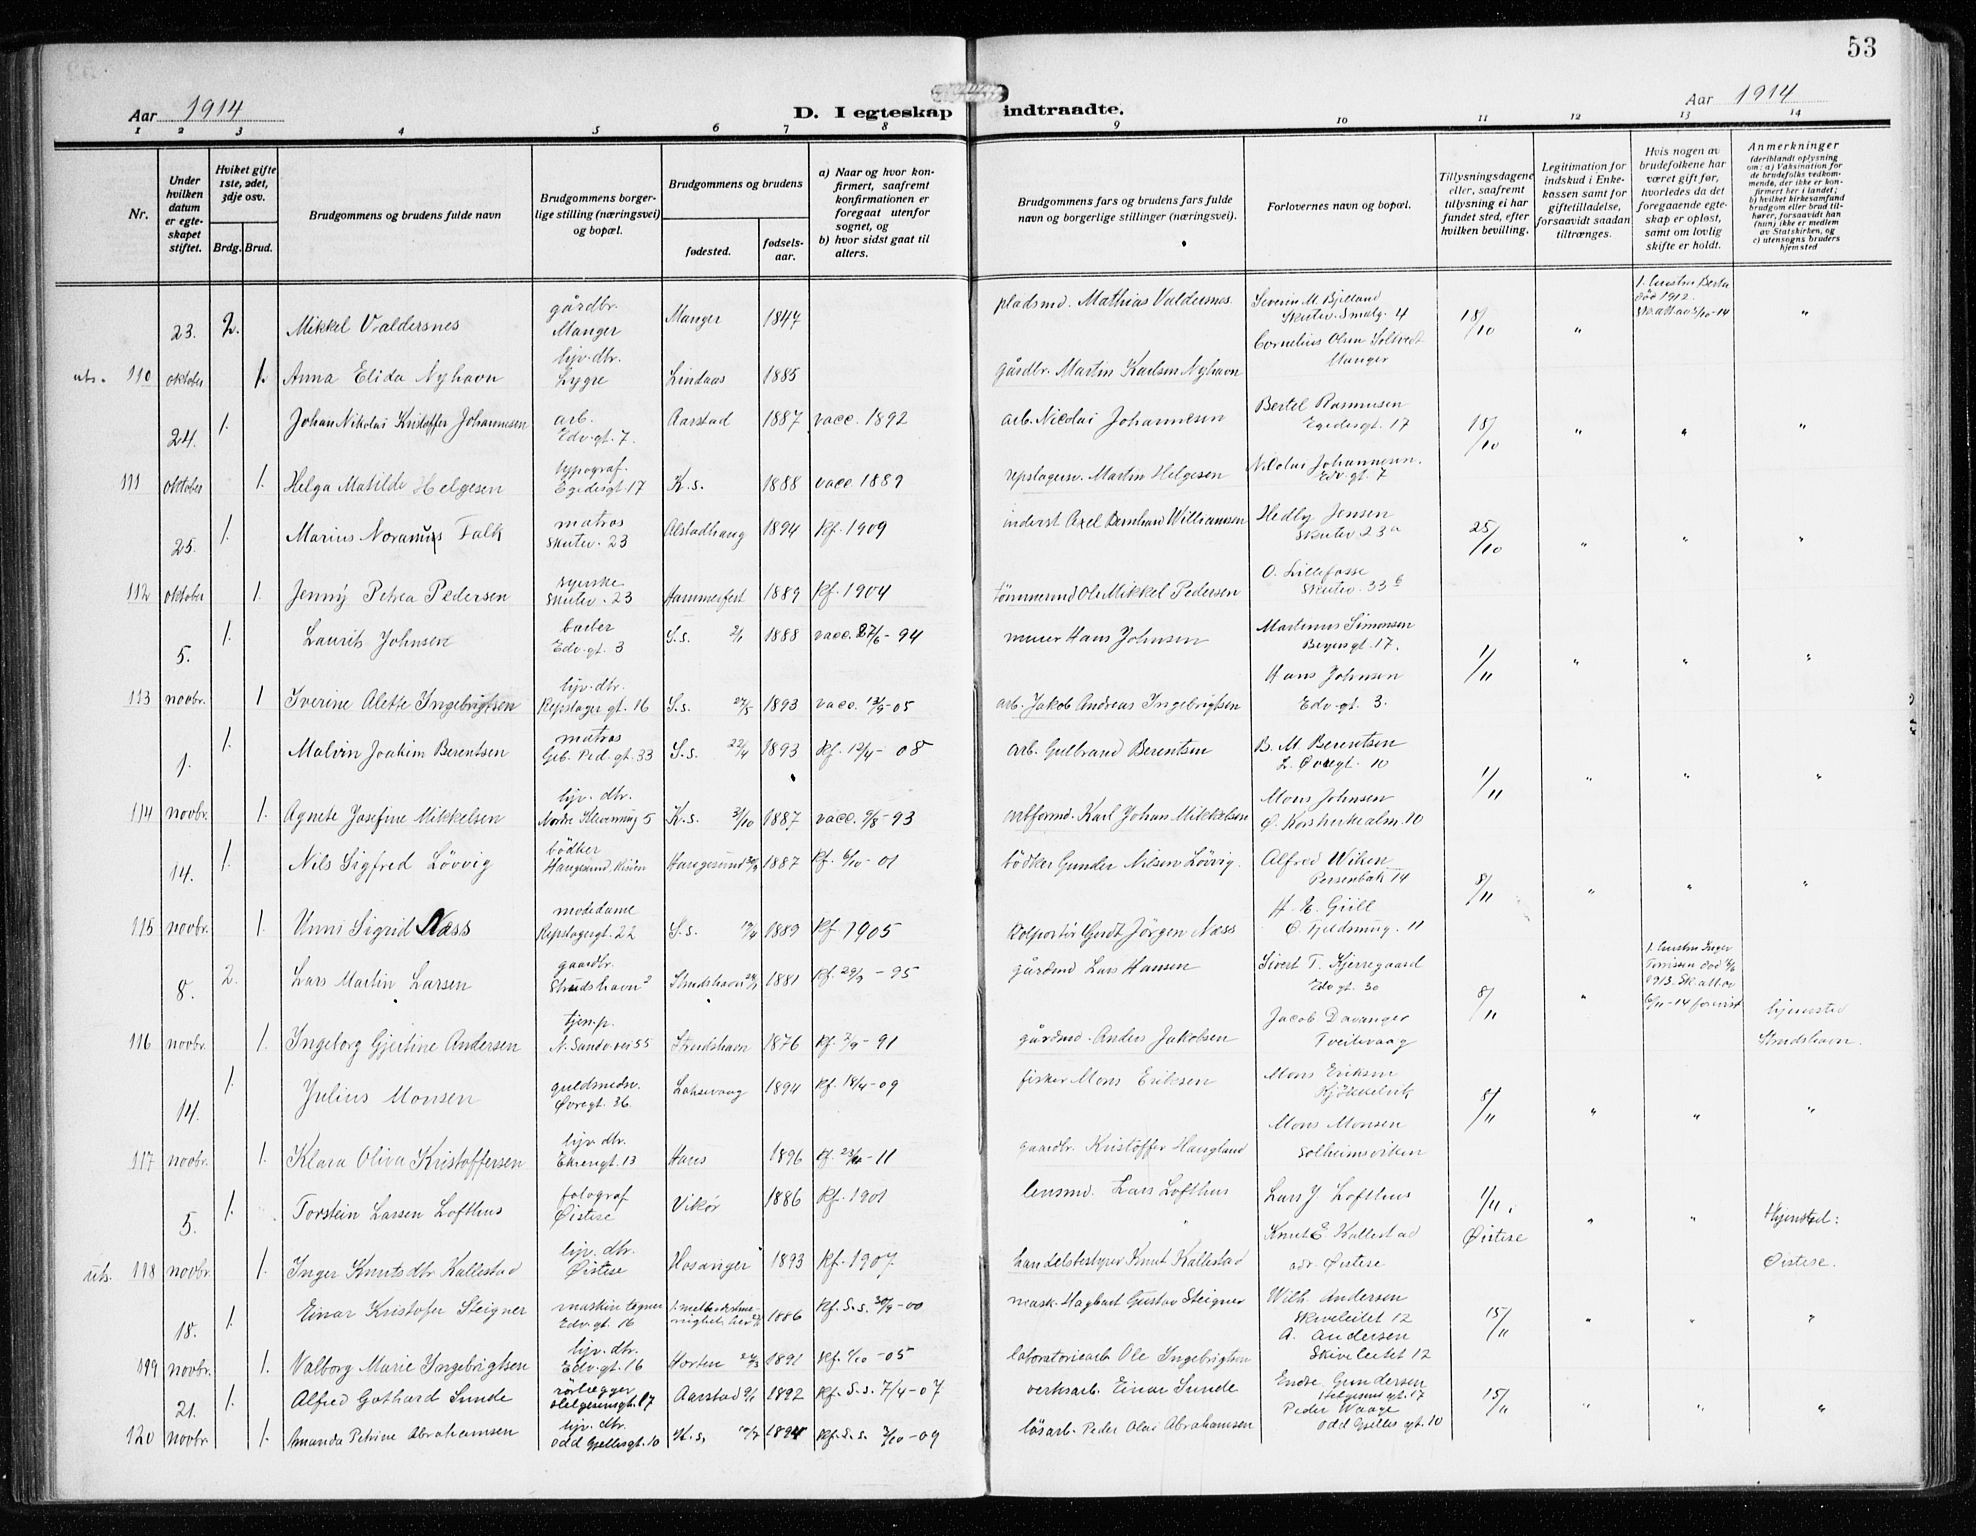 53
Aar 1914
D. I egteskap indtraadte.
Aar 1914
1 2 3 4 5 6 7 8 9 10 11 12 13 14
Nr.
Under hvilken datum er egteskapet stiftet.
Hviket gifte 1ste, 2det, 3dje osv.
Brdg. Brud.
Brudgommens og brudens fulde navn
Brudgommens borgerlige stilling (næringsvei) og bopæl.
Brudgommens og brudens
fødested. fødselsaar.
a) Naar og hvor konfirmert, saafremt konfirmationen er foregaat utenfor sognet, og
b) hvor sidst gaat til alters.
Brudgommens fars og brudens fars fulde navn og borgerlige stillinger (næringsvei).
Forlovernes navn og bopæl.
Tillysningsdagene eller, saafremt tillysning ei har fundet sted, efter hvilken bevilling.
Legitimation for indskud i Enkekassen samt for giftetilladelse, forsaavidt saadan tiltrænges.
Hvis nogen av brudefolkene har været gift før, hvorledes da det foregaaende egteskap er opløst, samt om lovlig skifte er holdt.
Anmerkninger (deriblandt oplysning om: a) Vaksination for de brudefolks vedkommende, der ikke er konfirmert her i landet; b) hvilket kirkesamfund brudgom eller brud tilhører, forsaavidt han (hun) ikke er medlem av Statskirken, og c) utensogns bruders hjemsted
23. 2. Mikkel Valdersnes gårdbr. Manger Manger 1847 pladsmd. Mathias Valdersnes Severin M. Bjelland Skutev. Smalg. 4 18/10 " 1. hustru død 1912. "
uts. 110 oktober 1. Anna Elida Nyhavn hjv. dtr. Lygre Lindaas 1885 gårdbr. Martin Karlsen Nyhavn Cornelius Olsen Manger
24. 1. Johan Nikolai Kristoffer Johannesen arb. Edv. gt. 7. Aarstad 1887 vacc. 1892 arb. Nicolai Johannesen Bertel Rasmusen Egedesgt. 17 18/10 " " "
111 oktober 1. Helga Matilde Helgesen typograf. Egedesgt 17 K.s. 1888 vacc 1889 repslagersv. Martin Helgesen Nicolai Johannesen. Edv. gt. 7
25. 1. Marius Falk matros Skutev. 23 Alstadhaug 1894 Kf. 1909 inderst Axel Bernhard Williamsen Hedley Jensen Skutev 23a 25/10 " " "
112 oktober 1. Jenny Petrea Pedersen syerske Skutev. 23 Hammerfest 1889 Kf. 1904 tømmermd Ole Mikkel Pedersen O. Lillefosse Skutev. 33b
5. 1. Laurits Johnsen barber Edv. gt. 3 S.s. 2/1 1888 vacc. 27/6 - 94 murer Hans Johnsen Martinus Simonsen 17. 1/11 " " "
113 novbr. 1 Iverine Alette Ingebrigtsen hjv. dtr. Repslager gt. 16 S.s. 27/5 1893 vacc. 12/9 - 05 arb. Jakob Andreas Ingebrigtsen Hans Johnsen Edv. gt. 3.
1. 1. Malvin Joachim Berentsen matros Geb. Ped. gt. 33 S.s. 22/4 1893 Kf. 12/4 - 08 arb. Gulbrand Berentsen B. M. Berentsen L. Øvregt. 10 1/11 " " "
114 novbr. 1. Agnete Josefine Mikkelsen hjv. dtr. 5 K.s. 31/10 1887 vacc. 9/8 - 93 arbformd. Karl Johan Mikkelsen Mons Johnsen Ø. Korskirkealm. 10
14. 1. Nils Sigfred Lövvig bödker Haugesund 1887 Kf. 6/10 - 01 bödker Gunder Nilsen Lövvig. Alfred Wiken Persenbak 14 8/11 " " "
115 novbr. 1. Unni Sigrid Næss modedame Repslagergt. 22 S.s. 1889 Kf. 1905 Kolportör Gerdt Jörgen Næss H. E. Grill 11
8. 2. Lars Martin Larsen gaardbr. Strudshavn 2 Strudshavn 1881 Kf. 29/9 - 95 gårdmd Lars Hansen Sivert T. Kjerregaard Edv gt. 30 8/11 " 1. hustru Inger død 1913. hjemsted
116 novbr. 1. Ingeborg Gjertine Andersen tjen. p. N. Sandv. vei 55 Strudshavn 1876 Kf. 91 gårdmd. Anders Jakobsen Jacob Davanger Tveitevaag Strudshavn.
14. 1. Julius Monsen guldsmedsv. Øvregt. 36 Laksevaag 1894 Kf. 18/4 - 09 fisker Mons Eriksen Mons Eriksen Kjökkelvik 8/11 " " "
117 novbr. 1. Klara Oliva Kristoffersen hjv. dtr. Ekrengt. 13 Haus 1896 Kf. 23/10 - 11 gaardbr. Kristoffer Haugland Mons Monsen Solheimsviken
5. 1. Torstein Larsen Lofthus fotograf Øistese Vikør 1886 Kf. 1901 lensmd. Lars Lofthus Lars J. Lofthus 1/11 i Øistese " " Hjemsted: Øistese.
uts. 118 novbr 1. Inger Knutsdtr Kallestad hjv. dtr. Øistese Hosanger 1893 Kf. 1907. handelsbestyrer Knut Kallestad Knut E. Kallestad adr. Øistese
18. 1. Einar Kristofer Steigner maskin tegner Edv. gt. 16 1886 Kf. S.s. 30/9 - 00 mask. Hagbart Gustav Steigner Wilh. Andersen Skiveleitet 12 15/11 " " "
119 novbr. 1. Valborg Marie Ingebrigtsen hjv. dtr. Edv. gt. 16 Horten 1891 Kf. 4/10 - 05 laboratoriearb. Ole Ingebrigtsen A. Andersen Skiveleitet 12
21. 1. Alfred Gothard Sunde rörlægger Helgesensgt. 17 Aarstad 1892 Kf. S.s. 7/4 - 07 verksarb. Einar Sunde Endre Gundersen Helgesens gt. 17 15/11 " " "
120 novbr. 1. Amanda Petrine Abrahamsen hjv. dtr. odd Gjellesgt. 10 K.s. 1894 Kf. S.s. 3/10 - 09 lösarb. Peder Olai Abrahamsen Peder Waage odd Gjelles gt. 10